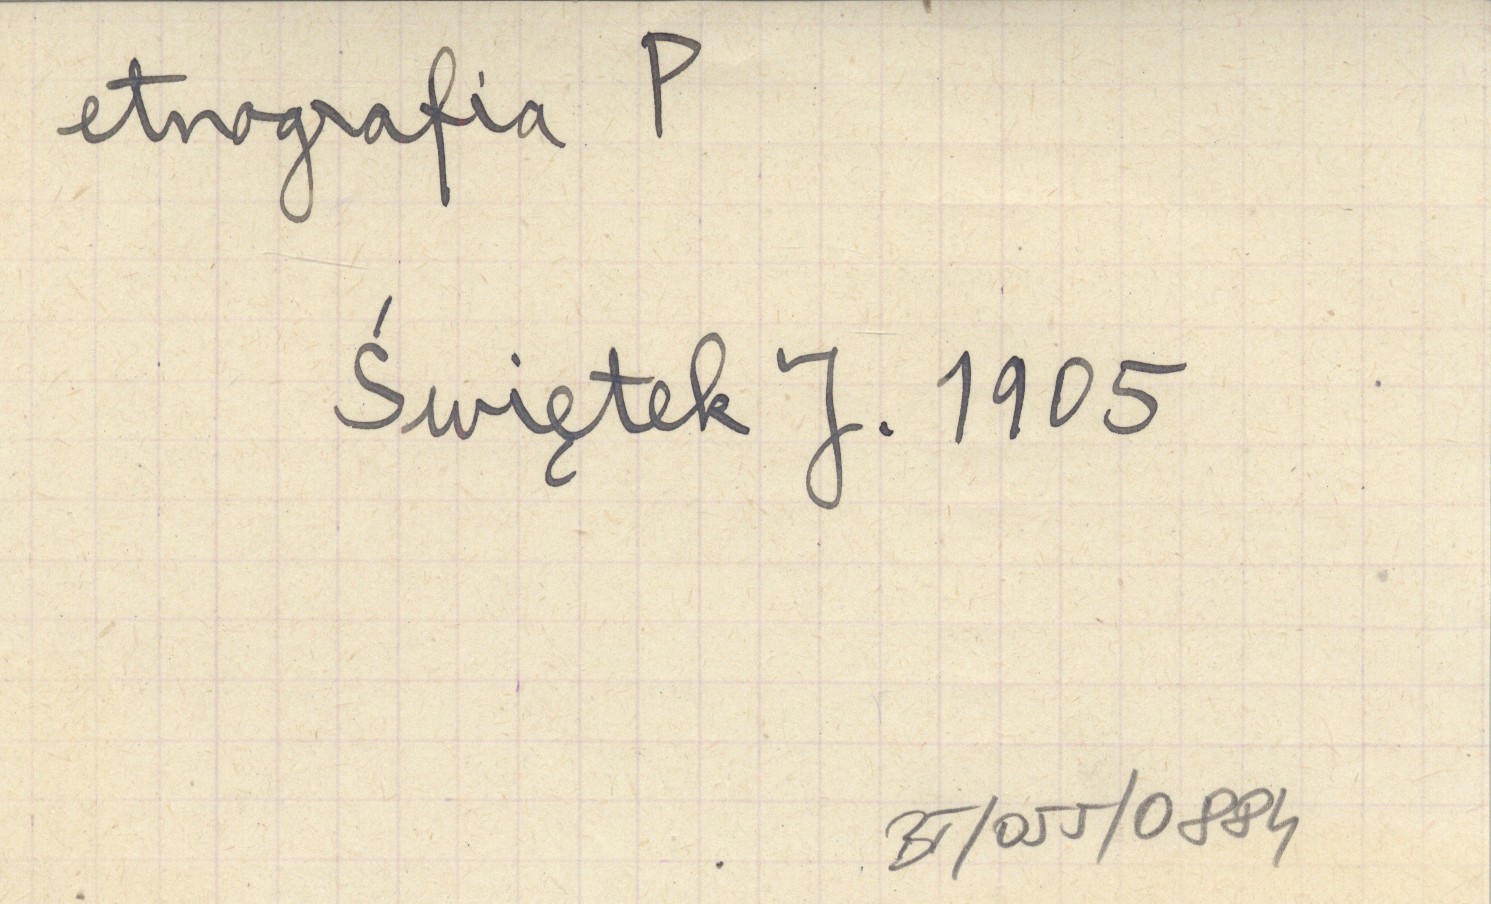 etnografia P
Świętek J. 1905
BT/055/0884